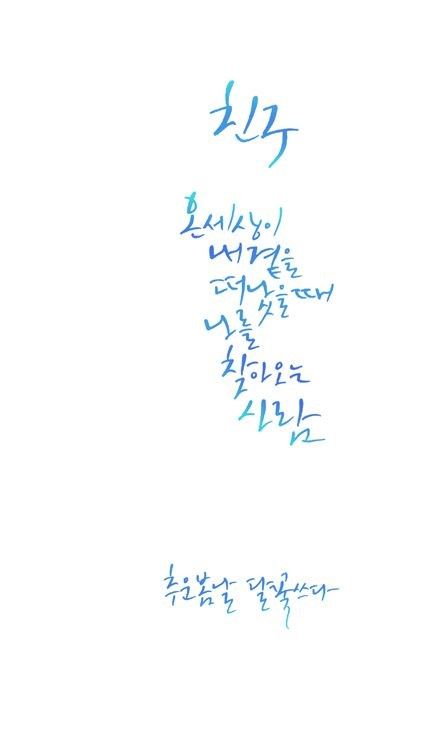 친구
온세상이
내곁을
떠났을때
나를
찾아오는
사람
추운봄날 달꿀쓰다